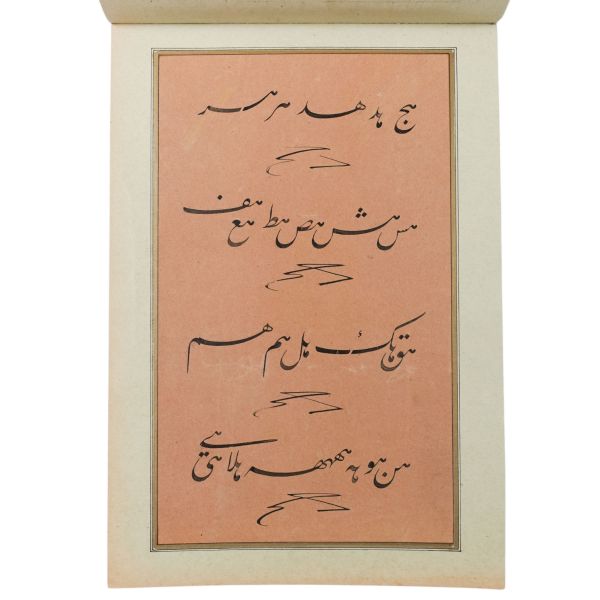 هج هد هد هر هر
هس هش هص هط هع هف
هق هك هل هم هم
هن هو هه هلا هی هی